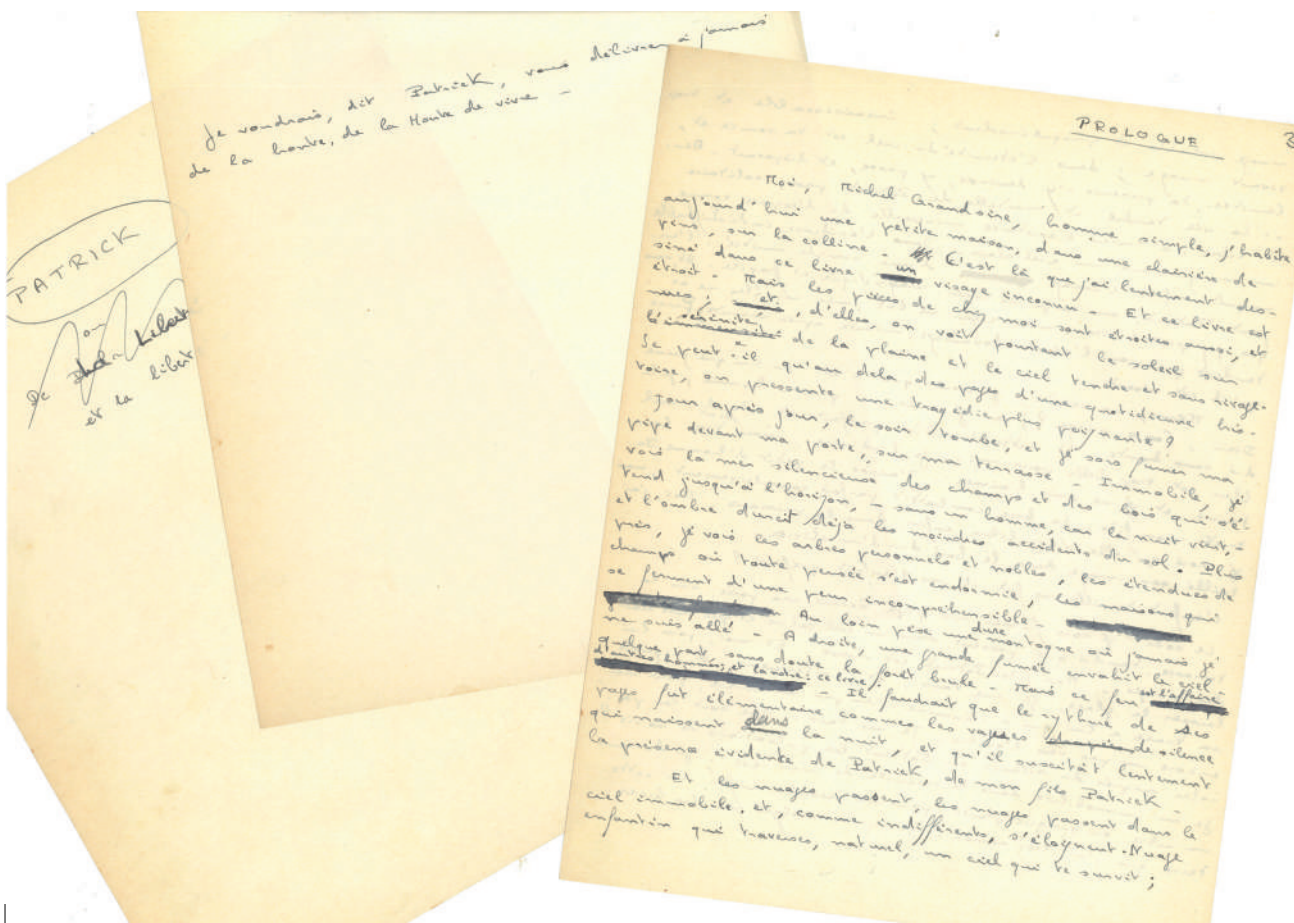 PATRICK
ou
De
et la libert
Je voudrais, dit Patrick, vous délivrer à jamais
de la honte, de la Honte de vivre –
PROLOGUE
3
Moi, Michel Grandoire, homme simple, j'habite
aujourd'hui une petite maison, dans une clairière de
pins, sur la colline – C'est là que j'ai lentement des-
siné dans ce livre un visage inconnu – Et ce livre est
étroit – Mais les pièces de chez moi sont étroites aussi, et
nues ; et, d'elles, on voit pourtant le soleil sur
sérénité
l'immensité de la plaine et le ciel tendre et sans rivage.
Se peut-il qu'au delà des pages d'une quotidienne his-
toire, on pressente une tragédie plus poignante ?
Jour après jour, le soir tombe, et je sors fumer ma
pipe devant ma porte, sur ma terrasse – Immobile, je
vois la mer silencieuse des champs et des bois qui s'é-
tend jusqu'à l'horizon, – sans un homme, car la nuit vient, –
et l'ombre durcit déjà les moindres accidents du sol. Plus
près, je vois les arbres personnels et nobles, les étendues de
champs où toute pensée s'est endormie, les maisons qui
se ferment d'une peur incompréhensible –
Au loin pèse une dure montagne où jamais je
ne suis allé – A droite, une grande fumée envahit le ciel –
quelque part, sans doute la forêt brule – Mais ce feu est l'affaire
d'autres hommes, et la nôtre : ce livre.
– Il faudrait que le rythme de ses
pages fut élémentaire comme les vagues de silence
qui naissent dans la nuit, et qu'il suscitât lentement
la présence évidente de Patrick, de mon fils Patrick –
Et les nuages passent, les nuages passent dans le
ciel immobile, et, comme indifférents, s'éloignent. Nuage
enfantin qui traverses, naturel, un ciel qui te survit ;